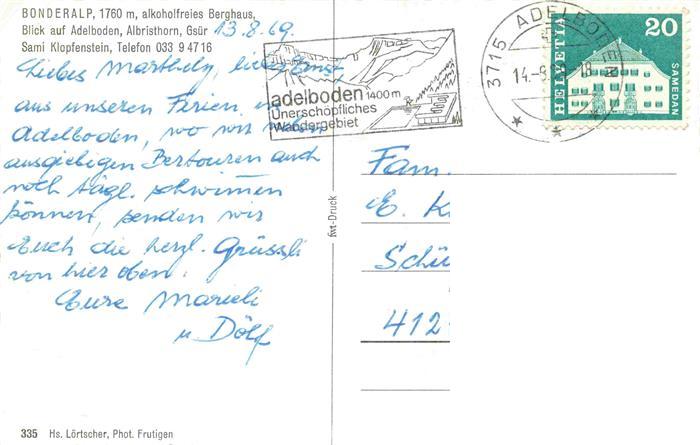 BONDERALP, 1760 m, alkoholfreies Berghaus,
Blick auf Adelboden, Albristhorn, Gsür 13.8.69.
Sami Klopfenstein, Telefon 033 9 47 16
Liebes Marthely,
aus unseren Ferien in
Adelboden, wo wir neben
ausgiebigen Bertouren auch
noch tägl. schwimmen
können, senden wir
Euch die herzl. Grüssli
von hier oben.
Eure Marieli
u Dölf
335 Hs. Lörtscher, Phot. Frutigen
adelboden 1400 m
Unerschöpfliches
Wandergebiet
3715 ADELBODEN
14.-8.
18
HELVETIA
20
SAMEDAN
fwt-Druck
Fam.
E. K
Schü
412